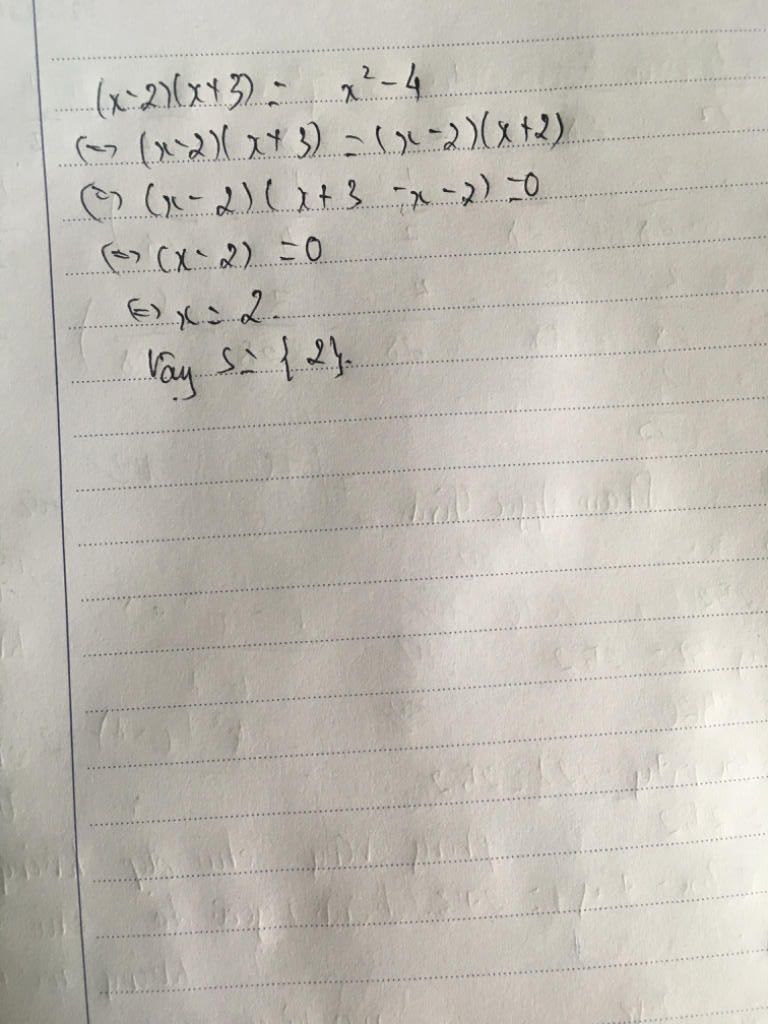 (x-2)(x+3) = x² - 4
(=) (x-2)(x+3) = (x-2)(x+2)
(=) (x-2)(x+3 -x-2) = 0
(=) (x-2) = 0
(=) x = 2.
Vậy S = {2}.